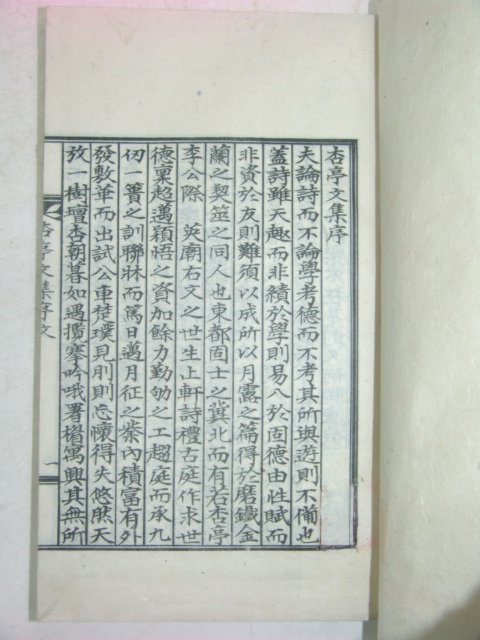 杏亭文集序
夫論詩而不論學考德而不考其所與遊則不備也
蓋詩雖天趣而非績於學則易入於固德由性賦而
非資於友則難須以成所以月露之篇得於磨鐵金
蘭之契筮之同人也東都固士之冀北而有若杏亭
李公際 英廟右文之世生上軒詩禮古庭作求世
德裏超邁穎悟之資加餘力勤劬之工趨庭而承九
仞一簣之訓聯牀而篤日邁月征之業內積富有外
發敷華而出試公車楚璞見刖則忘懷得失悠然天
放一樹壇杏朝暮如遇攬搴吟哦署楣寓興其無所
杏亭文集序文
一